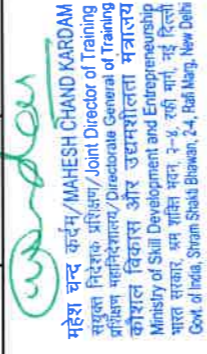 महेश चन्द कर्दम/MAHESH CHAND KARDAM
संयुक्त निदेशक प्रशिक्षण/Joint Director of Training
प्रशिक्षण महानिदेशालय/Directorate General of Training
कौशल विकास और उद्यमशीलता मंत्रालय
Ministry of Skill Development and Entrepreneurship
भारत सरकार, श्रम शक्ति भवन, २-४, रफी मार्ग, नई दिल्ली
Govt. of India, Shram Shakti Bhawan, 2-4, Rafi Marg, New Delhi